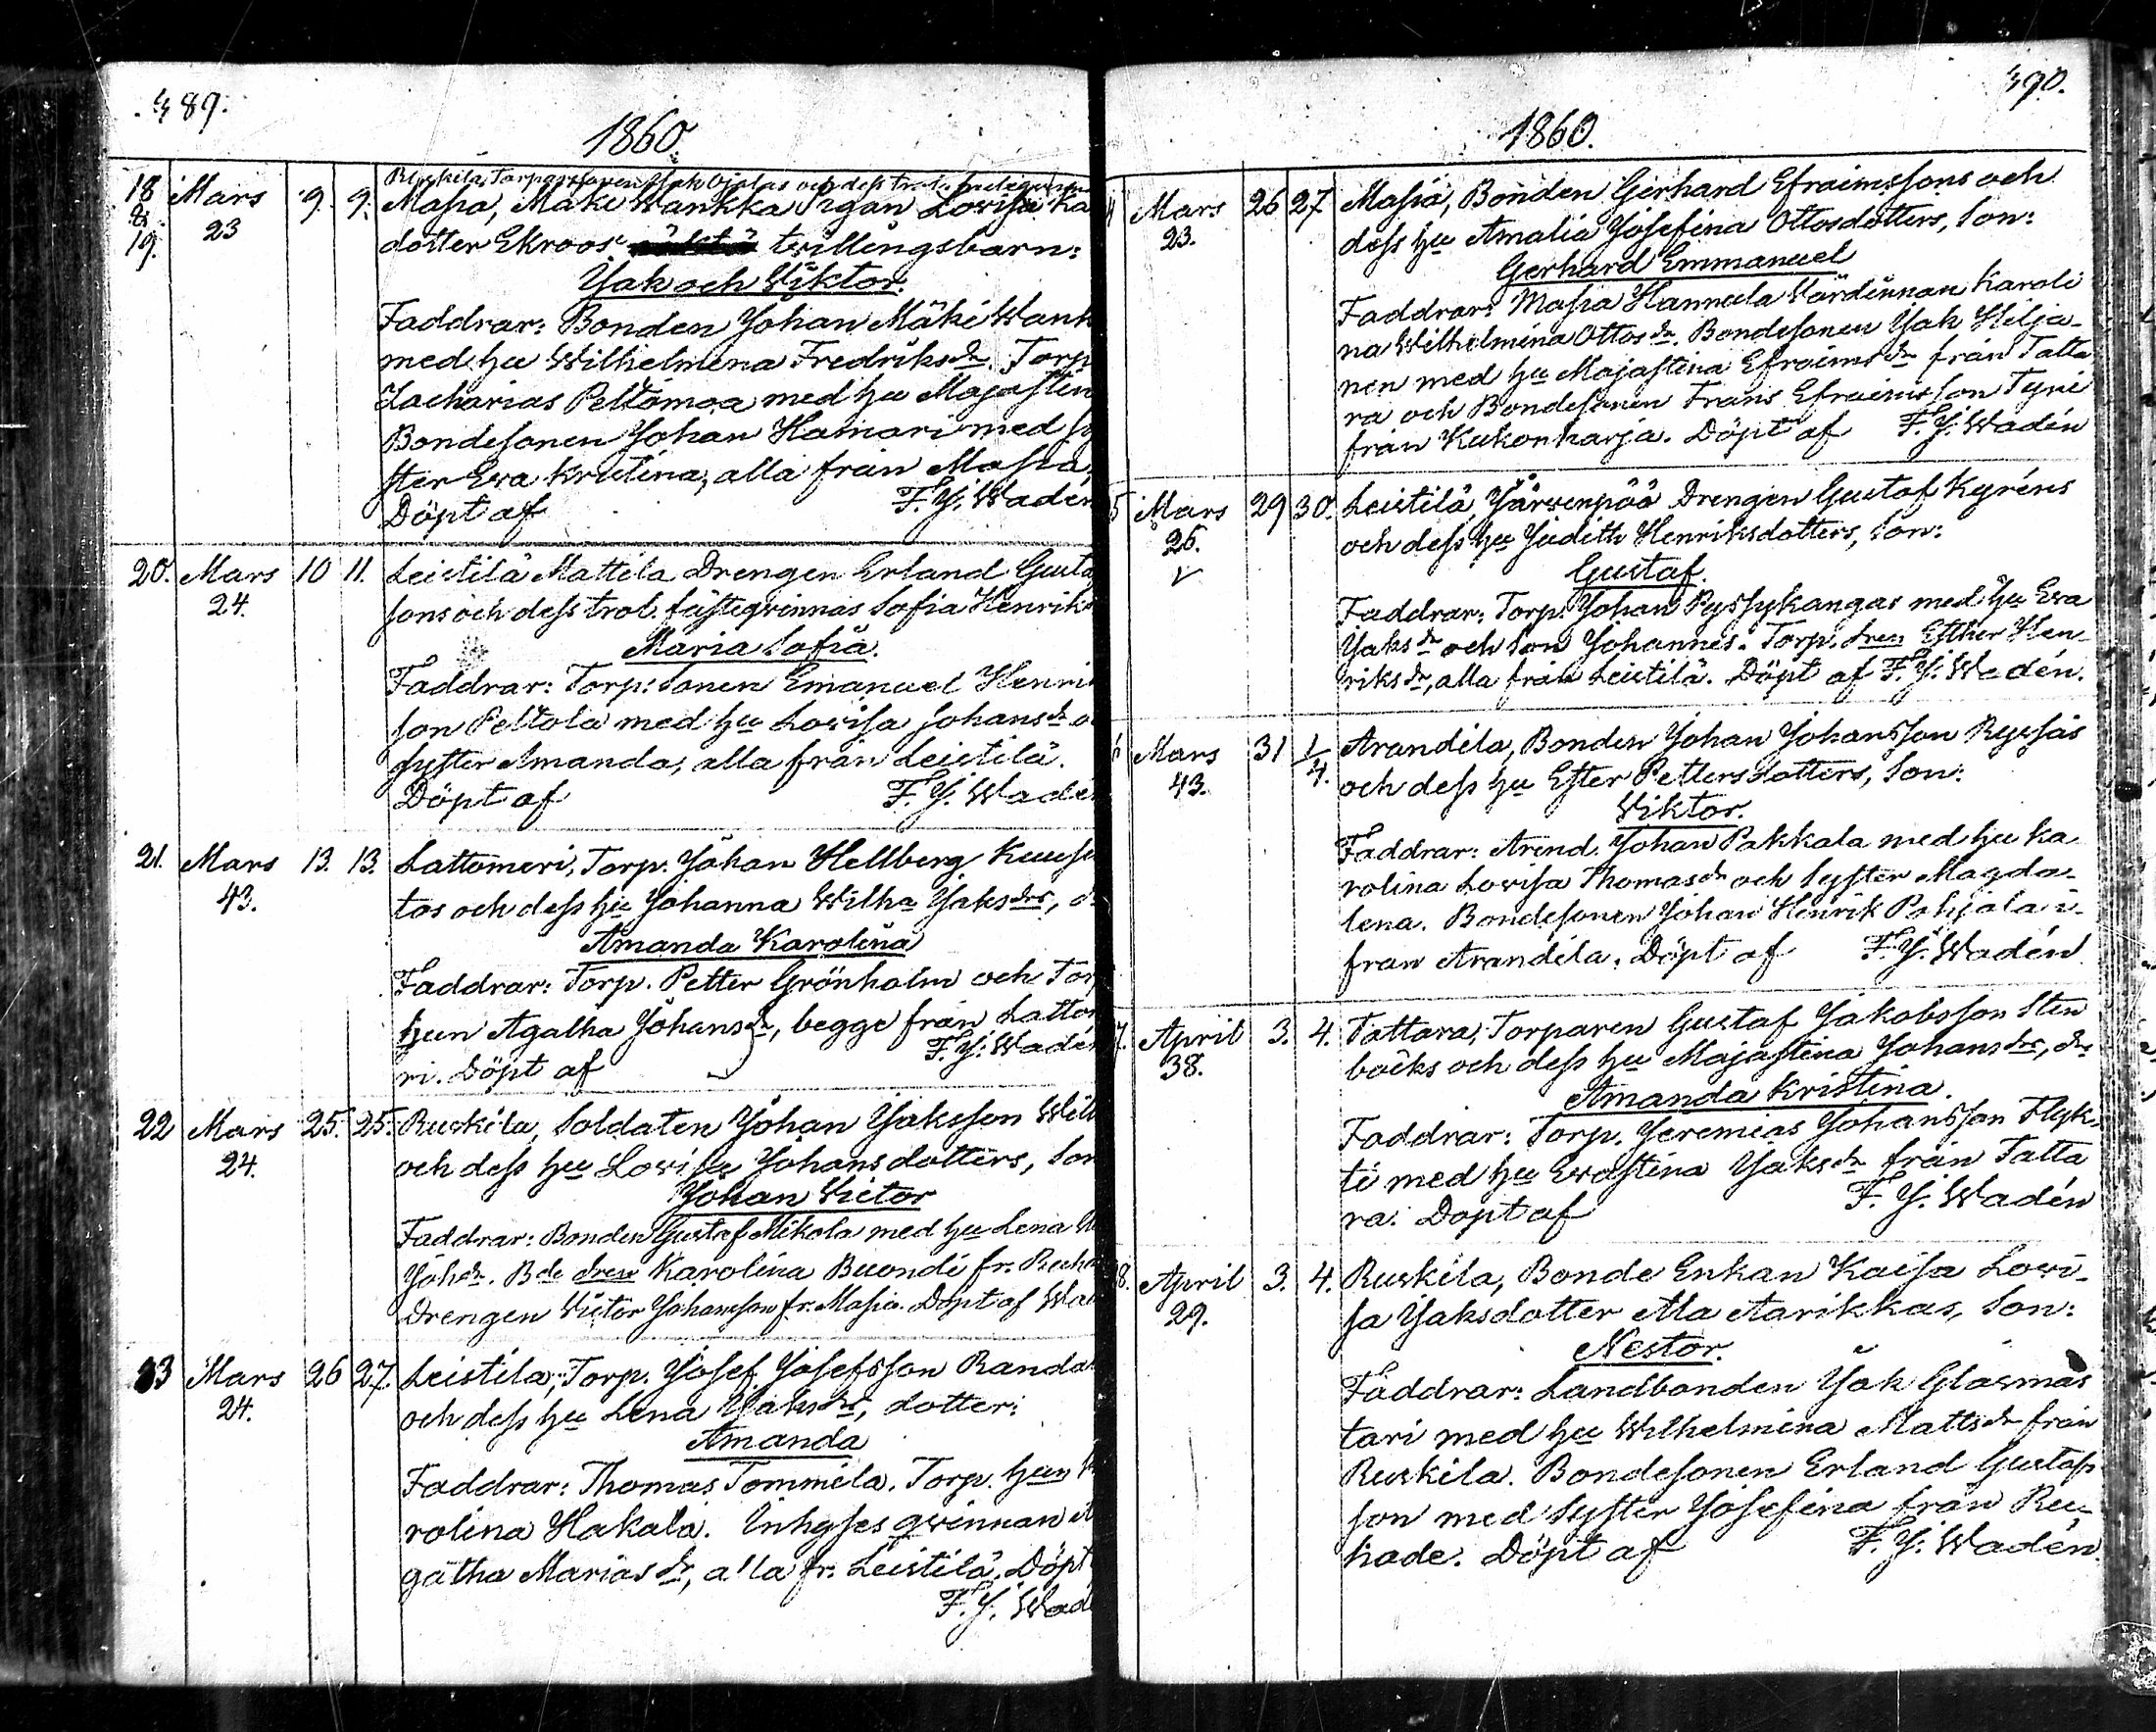 489.
1860.
18 & 19. Mars 23 9. 9. Ruskila, Torparesonen Jak Ojalas och dess
Masia, Mäki Wankka Pigan Lovisa Ka
dotter Ekroos twillingsbarn:
Jak och Wiktor.
Faddrar: Bonden Johan Mäki Wank
med hu Wilhelmina Fredriksdr. Torp
Zacharias Peltomaa med hu Majastin
Bondesonen Johan Hamari med sy
ster Ewa Kristina, alla från Masia,
Döpt af F. J. Wadén
20. Mars 24. 10 11. Leistilä Mattila Drengen Erland Gusta
sons och dess trol. fästeqvinnas Sofia Henriks
Maria Sofia.
Faddrar: Torp: Sonen Emanuel Henrik
son Peltola med hu Lovisa Johansdr o
syster Amanda, alla från Leistilä.
Döpt af F. J. Wadén
21. Mars 43. 13. 13. Lattomeri, Torp. Johan Hellberg Kuuse
tos och dess hu Johanna Wilha Jaksdrs, d
Amanda Karolina
Faddrar: Torp. Petter Grönholm och Torp
hun Agatha Johansdr, begge från Latto
ri. Döpt af F. J. Wadén
22 Mars 24. 25. 25. Ruskila, Soldaten Johan Jaksson Will
och dess hu Lovisa Johansdotters, Son
Johan Victor
Faddrar: Bonden Gustaf Mikola med hu Lena
Johdr. Bde dren Karolina Buondi fr. Ruha
Drengen Victor Johansson fr. Masia. Döpt af Wad
23 Mars 24. 26 27. Leistila, Torp. Josef Josefsson Randa
och dess hu Lena Jaksdrs, dotter:
Amanda
Faddrar: Thomas Tommila. Torp. hun K
rolina Hakala. Inhyses qvinnan A
gatha Mariasdr, alla fr. Leistilä. Döpt
F. J. Wad
490.
1860.
Mars 23. 26 27 Masia, Bonden Gerhard Efraimssons och
dess hu Amalia Josefina Ottosdotters, Son:
Gerhard Emmanuel
Faddrar: Masia Hannula Wärdinnan Karoli
na Wilhelmina Ottosdr. Bondesonen Jak Hilja-
nen med hu Majastina Efraimsdr från Tatta
ra och Bondesonen Frans Efraimsson Tyni
från Kukonharja. Döpt af F. J. Wadén
5 Mars 26. 29 30. Leistilä, Järvenpää Drengen Gustaf Kyréns
och dess hu Judith Henriksdotters, Son:
Gustaf.
Faddrar: Torp. Johan Pyssykangas med hu Ewa
Jaksdr och Son Johannes. Torp. dren Esther Hen-
riksdr, alla från Leistilä. Döpt af F. J. Wadén.
6 Mars 43. 31 1/4. Arandila, Bonden Johan Johansson Ryssäs
och dess hu Ester Pettersdotters, Son:
Wiktor.
Faddrar: Arend. Johan Pakkala med hu Ka
rolina Lovisa Thomasdr och Syster Magda-
lena. Bondesonen Johan Henrik Pohjala
fran Arandila. Döpt af F. J. Wadén
7. April 38. 3. 4. Tattara, Torparen Gustaf Jakobsson Sten
bäcks och dess hu Majastina Johansdrs, dr
Amanda Kristina.
Faddrar: Torp. Jeremias Johansson Flyk-
ti med hu Ewastina Jaksdr från Tatta
ra. Döpt af F. J. Wadén
8. April 29. 3. 4. Ruskila, Bonde Enkan Kaisa Lovi-
sa Jaksdotter Ala Aarikkas, Son:
Nestor.
Faddrar: Landbonden Jak Glasmäs
tari med hu Wilhelmina Mattsdr från
Ruskila. Bondesonen Erland Gustafs
son med Syster Josefina från Ru-
hade. Döpt af F. J. Wadén.